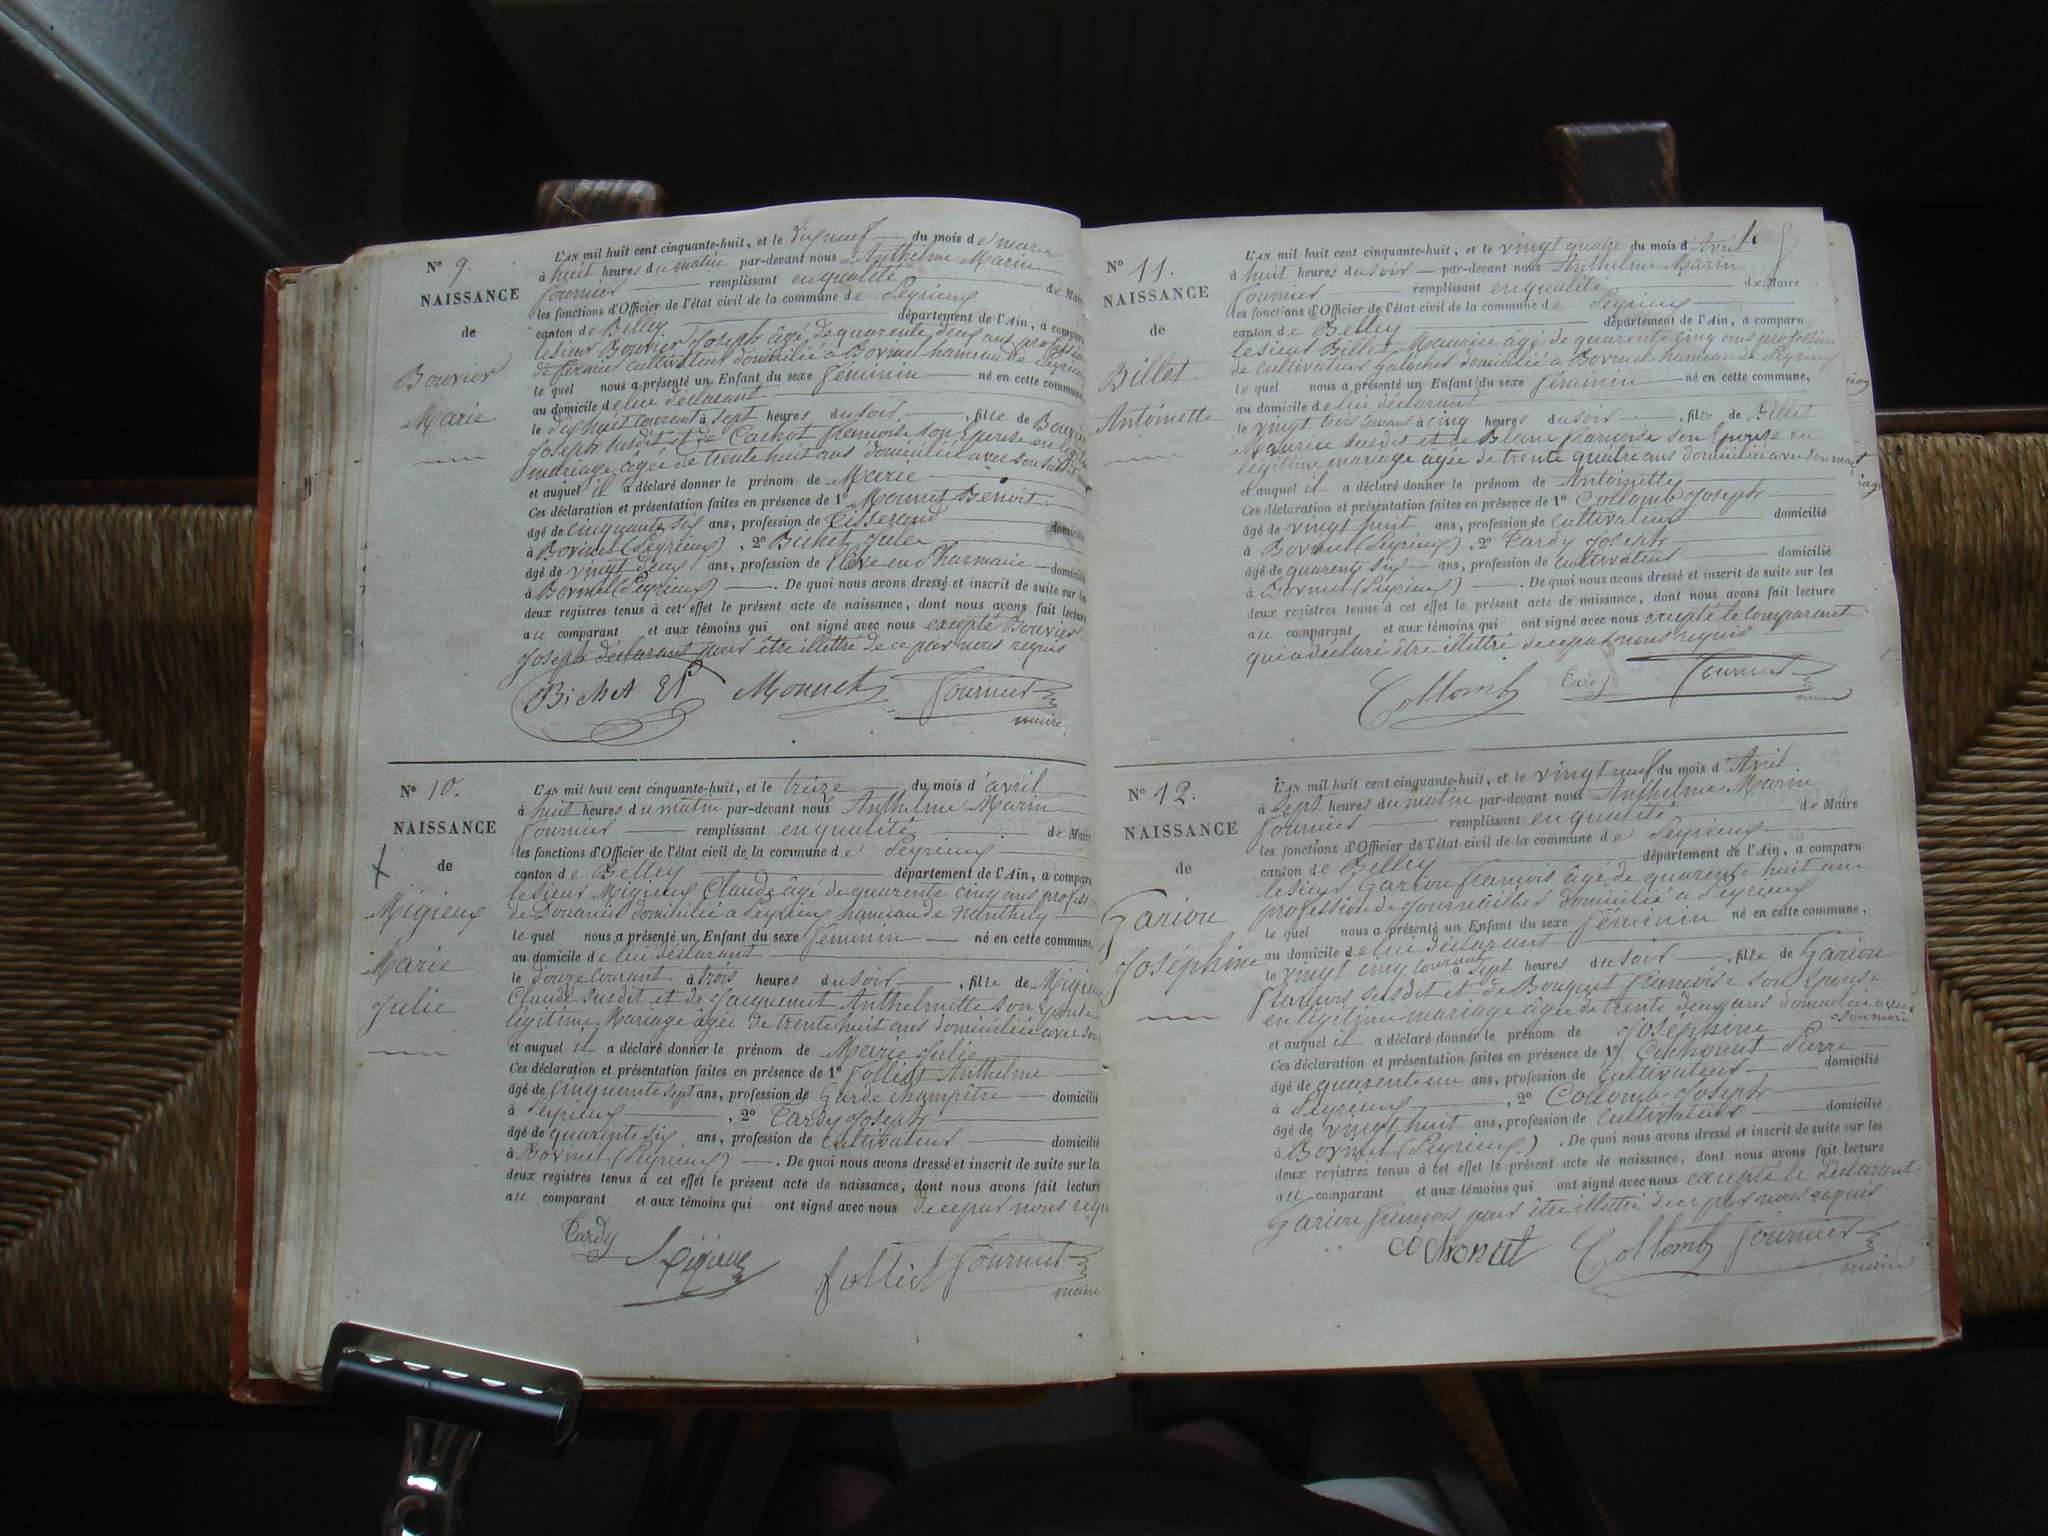 N° 9.
NAISSANCE
de
Bouvier
Marie
L'AN mil huit cent cinquante-huit, et le dix neuf du mois de mars
à huit heures du matin par-devant nous Anthelme Marin
Fournier remplissant en qualité de Maire
les fonctions d'Officier de l'état civil de la commune de Peyrieux
canton de Belley département de l'Ain, a comparu
le sieur Bouvier Joseph âgé de quarente deux ans profession
de fermier cultivateur domicilié à Bovinel hameau de Peyrieux
le quel nous a présenté un Enfant du sexe féminin né en cette commune,
au domicile de lui déclarant
le dix huit courant à sept heures du soir, fille de Bouvier
Joseph susdit et de Cachot françoise son Epouse en légitime
mariage âgée de trente huit ans domiciliée avec son susdit
et auquel il a déclaré donner le prénom de Marie
Ces déclaration et présentation faites en présence de 1° Monnet Benoit
âgé de cinquante six ans, profession de Tisserand domicilié
à Bovinel (Peyrieux), 2° Bichet Jules
âgé de vingt deux ans, profession de Elève en Pharmacie domicilié
à Bovinel (Peyrieux). De quoi nous avons dressé et inscrit de suite sur les
deux registres tenus à cet effet le présent acte de naissance, dont nous avons fait lecture
au comparant et aux témoins qui ont signé avec nous excepté Bouvier
Joseph déclarant pour être illettré de ce par nous requis
Bichet Monnet Fournier
maire
N° 10.
NAISSANCE
de
Migieux
Marie
Julie
L'AN mil huit cent cinquante-huit, et le treize du mois d'avril
à huit heures du matin par-devant nous Anthelme Marin
Fournier remplissant en qualité de Maire
les fonctions d'Officier de l'état civil de la commune de Peyrieux
canton de Belley département de l'Ain, a comparu
le sieur Migieux Claude âgé de quarente cinq ans profession
de Douanier domicilié à Peyrieux hameau de
le quel nous a présenté un Enfant du sexe féminin né en cette commune,
au domicile de lui déclarant
le douze courant à trois heures du soir, fille de Migieux
Claude susdit et de Jacquemet Anthelmette son Epouse
légitime Mariage âgée de trente huit ans domiciliée avec son
et auquel il a déclaré donner le prénom de Marie Julie
Ces déclaration et présentation faites en présence de 1° Folliet Anthelme
âgé de cinquante sept ans, profession de Garde champêtre domicilié
à Peyrieux, 2° Tardy Joseph
âgé de quarente six ans, profession de cultivateur domicilié
à Bovinel (Peyrieux). De quoi nous avons dressé et inscrit de suite sur les
deux registres tenus à cet effet le présent acte de naissance, dont nous avons fait lecture
au comparant et aux témoins qui ont signé avec nous de ce par nous requis
Tardy Migieux Folliet Fournier
maire
N° 11.
NAISSANCE
de
Billet
Antoinette
L'AN mil huit cent cinquante-huit, et le vingt quatre du mois d'Avril
à huit heures du soir par-devant nous Anthelme Marin
Fournier remplissant en qualité de Maire
les fonctions d'Officier de l'état civil de la commune de Peyrieux
canton de Belley département de l'Ain, a comparu
le sieur Billet Maurice âgé de quarente cinq ans profession
de cultivateur galocher domicilié à Bovinel hameau de Peyrieux
le quel nous a présenté un Enfant du sexe féminin né en cette commune,
au domicile de lui déclarant
le vingt trois courant à cinq heures du soir, fille de Billet
Maurice susdit et de Blanc françoise son Epouse en
légitime mariage âgée de trente quatre ans domiciliée avec son mari
et auquel il a déclaré donner le prénom de Antoinette
Ces déclaration et présentation faites en présence de 1° Collomb Joseph
âgé de vingt huit ans, profession de cultivateur domicilié
à Bovinel (Peyrieux), 2° Tardy Joseph
âgé de quarente six ans, profession de cultivateur domicilié
à Bovinel (Peyrieux). De quoi nous avons dressé et inscrit de suite sur les
deux registres tenus à cet effet le présent acte de naissance, dont nous avons fait lecture
au comparant et aux témoins qui ont signé avec nous excepté le comparant
qui a déclaré être illettré de ce par nous requis
Collomb Tardy Fournier
maire
N° 12.
NAISSANCE
de
Gariou
Joséphine
L'AN mil huit cent cinquante-huit, et le vingt neuf du mois d'Avril
à sept heures du matin par-devant nous Anthelme Marin
Fournier remplissant en qualité de Maire
les fonctions d'Officier de l'état civil de la commune de Peyrieux
canton de Belley département de l'Ain, a comparu
le sieur Gariou françois âgé de quarente huit ans
profession de Journalier domicilié à Peyrieux
le quel nous a présenté un Enfant du sexe féminin né en cette commune,
au domicile de lui déclarant
le vingt cinq courant à sept heures du soir, fille de Gariou
françois susdit et de Bouquet françoise son Epouse
en légitime mariage âgée de trente deux ans domiciliée avec
son mari
et auquel il a déclaré donner le prénom de Joséphine
Ces déclaration et présentation faites en présence de 1° Cochonat Pierre
âgé de quarente un ans, profession de cultivateur domicilié
à Peyrieux, 2° Collomb Joseph
âgé de vingt huit ans, profession de cultivateur domicilié
à Bovinel (Peyrieux). De quoi nous avons dressé et inscrit de suite sur les
deux registres tenus à cet effet le présent acte de naissance, dont nous avons fait lecture
au comparant et aux témoins qui ont signé avec nous excepté le Déclarant
Gariou françois pour être illettré de ce par nous requis
Cochonat Collomb Fournier
maire